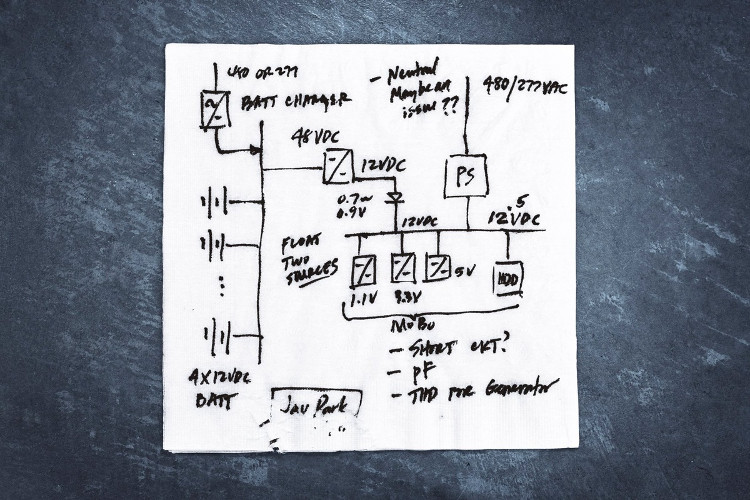 480 OR 277
BATT CHARGER
- Neutral
Maybe an
issue??
480/277 VAC
48VDC
12VDC
PS
0.7~
0.9V
12VDC
12.5VDC
FLOAT
TWO
SOURCES
1.1V
3.3V
5V
HDD
MoBo
- SHORT CKT?
- PF
- THD FOR Generator
4X12VDC
BATT
Jay Park